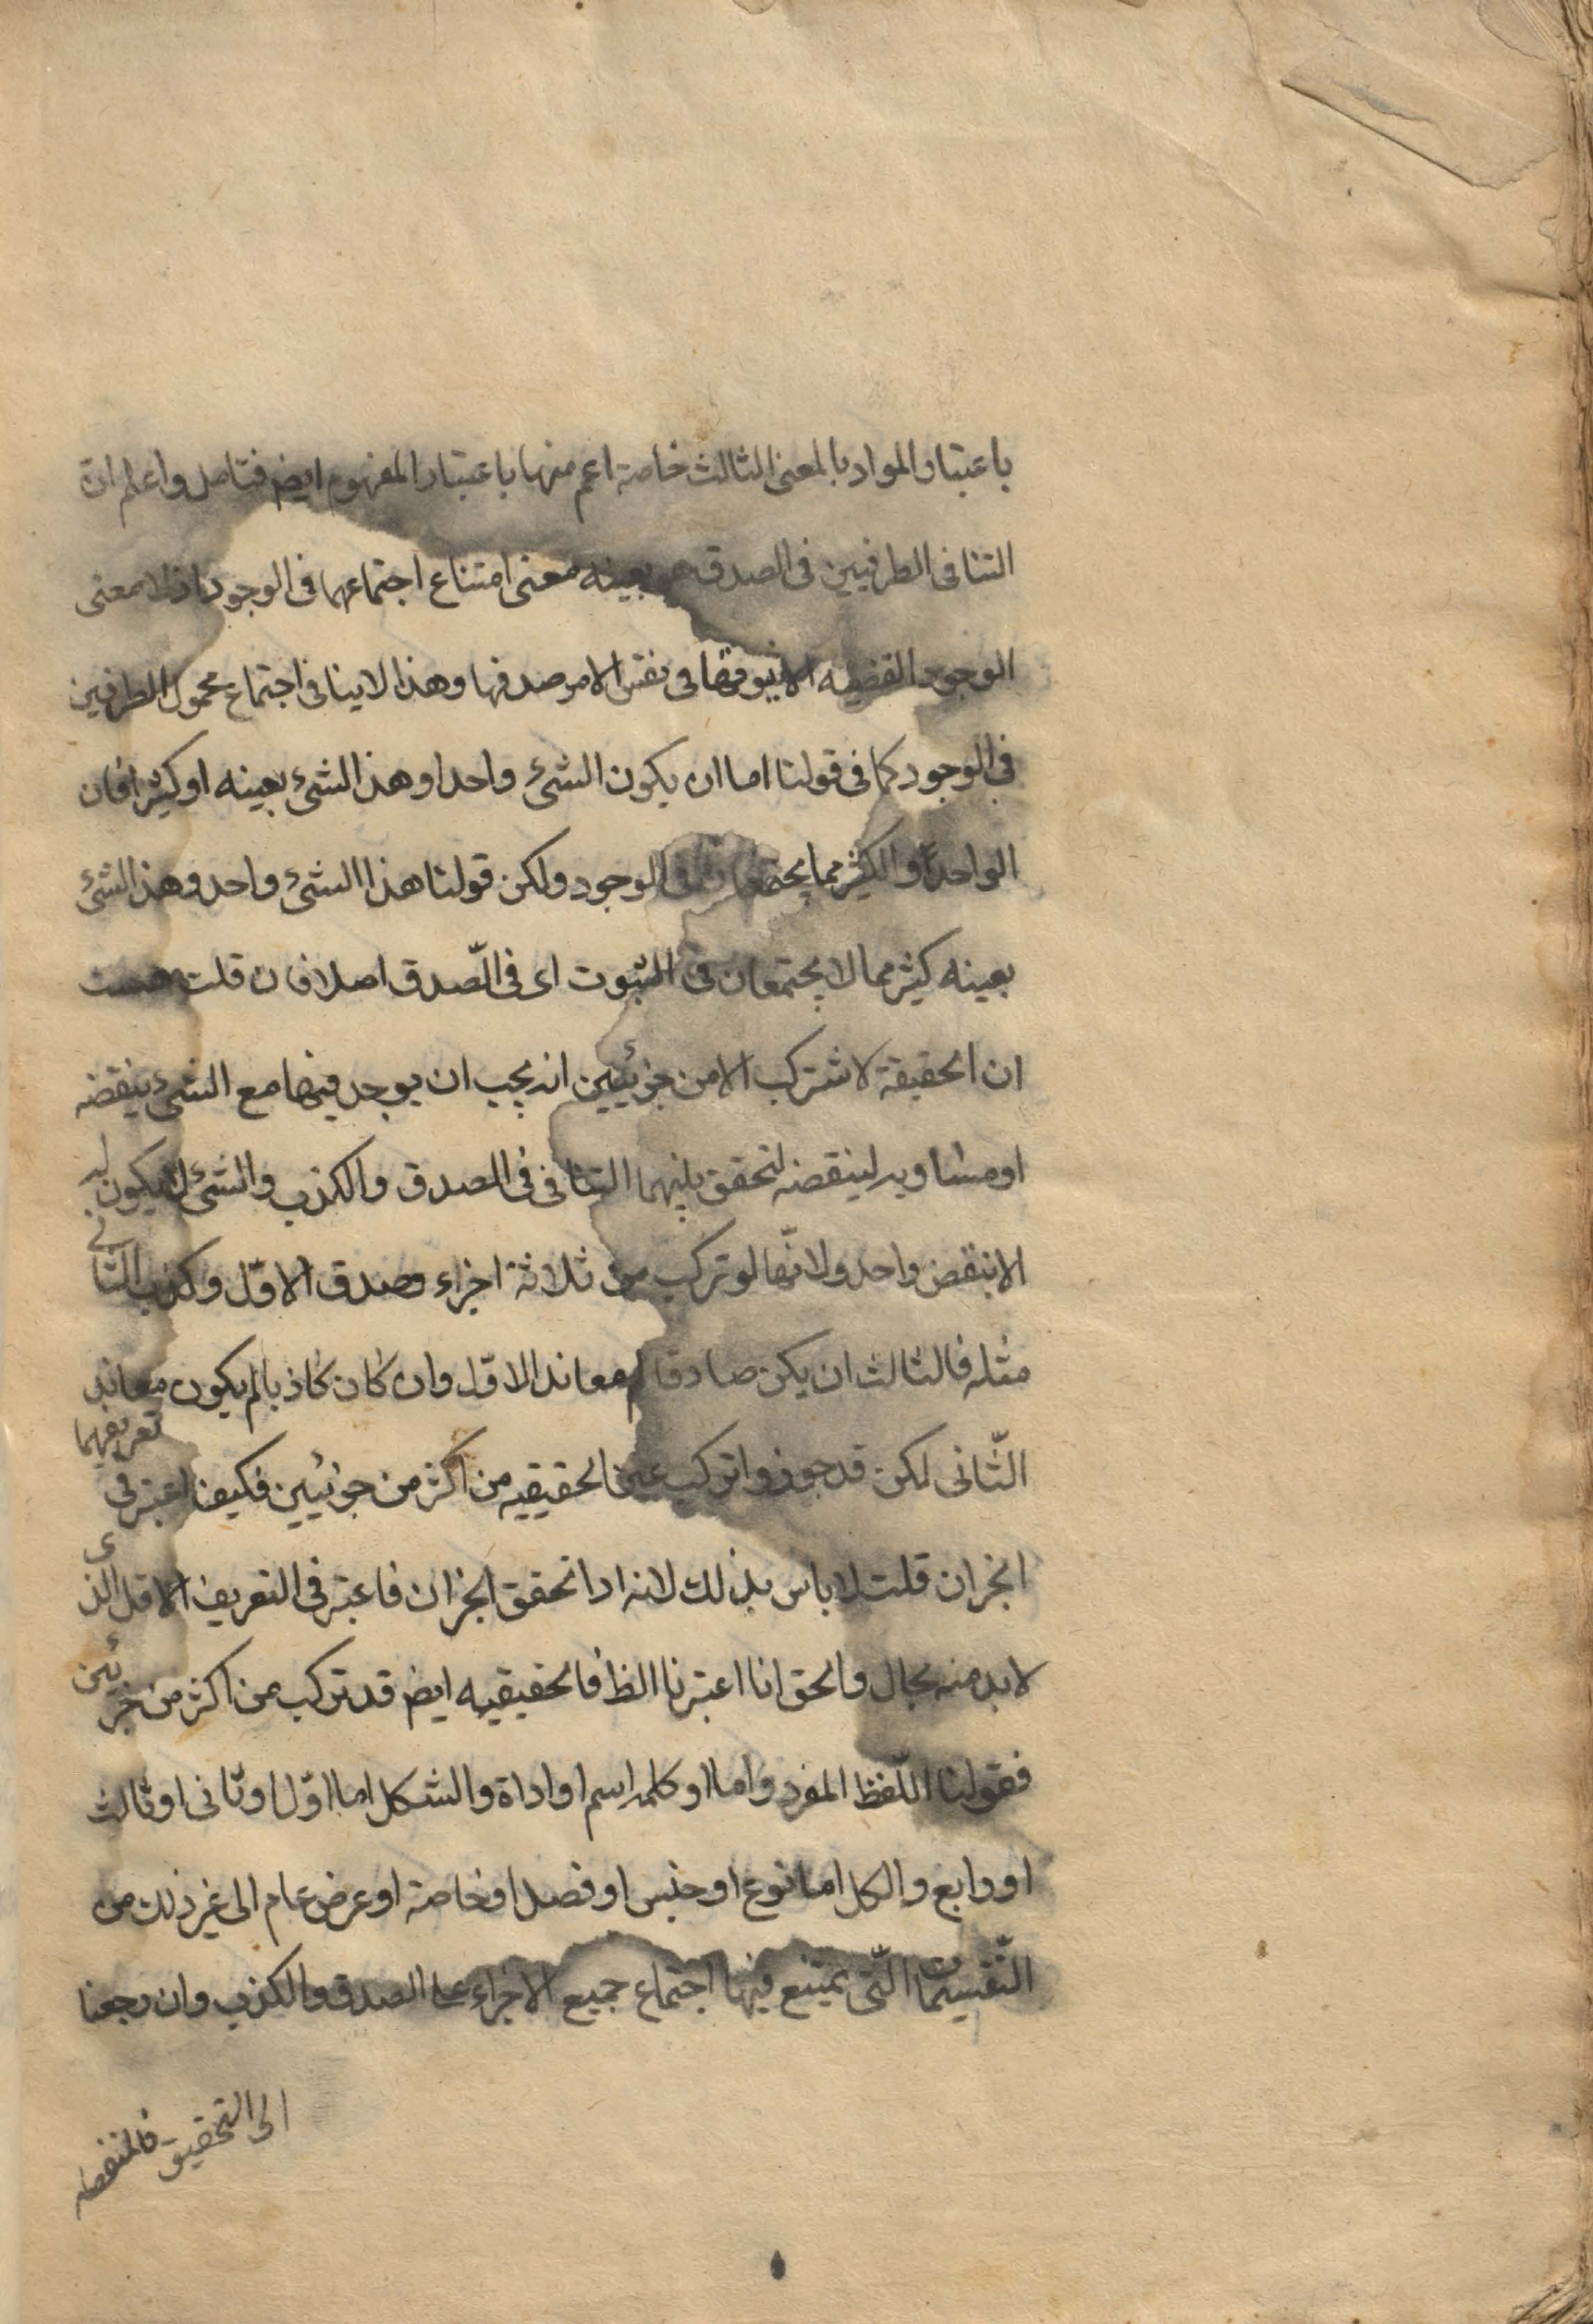 باعتبار المواد بالمعنى الثالث خاصة اعم منها باعتبار المفهوم ايضم فتامل واعلم ان
التنافى الطرفيين فى الصدق هو بعينه معنى امتناع اجتماعهما فى الوجود اذ لا معنى
الوجود القضيه الا ثبوتها فى نفس الامر صدقها وهذا لا ينافى اجتماع محمول الطرفين
فى الوجود كما فى قولنا اما ان يكون الشئ واحدا وهذا الشئ بعينه او كثيرا فان
الواحد والكثير مما يجتمعان فى الوجود ولكن قولنا هذا الشئ واحد وهذا الشئ
بعينه كثير مما لا يجتمعان فى الثبوت اى فى الصّدق اصلا فان قلت
ان الحقيقة لا تتركب الا من جزئيين انه يجب ان يوجد فيها مع الشئ ينقضه
او مساويه لينقضه لتحقق بينهما التنافى فى الصدق والكذب والشئ لا يكون له
الا نتقض واحد ولانّها لو تركب من ثلاثة اجزاء وصدق الاوّل وكذب الثانى
مثله فالثالث ان يكن صادقا لم معاند الاوّل وان كان كاذبا لم يكون معاند
الثّانى لكن قد جوزوا تركيب عين الحقيقيه من اكثر من جوئيين فكيف اعتبر فى تعريفهما
الجزان قلت لا باس بذلك لانه اذا تحقق الجزان فاعتبر فى التعريف الاقل الذى
لا بد منه بحال والحق انا اعتبرنا الظ فالحقيقيه ايضم قد تركب من اكثر من جزئين
فقولنا اللّفظ المفرد واما او كلمه اسم او اداة والشكل اما اوّل او ثانى او ثالث
او رابع والكل اما نوع او جنس او فصل او خاصة او عرض عام الى غير ذلك من
التّقسيمات الّتى يمتنع فيها اجتماع جميع الاجزاء على الصدق والكذب وان رجعنا
الى التحقيق فالمنفصله